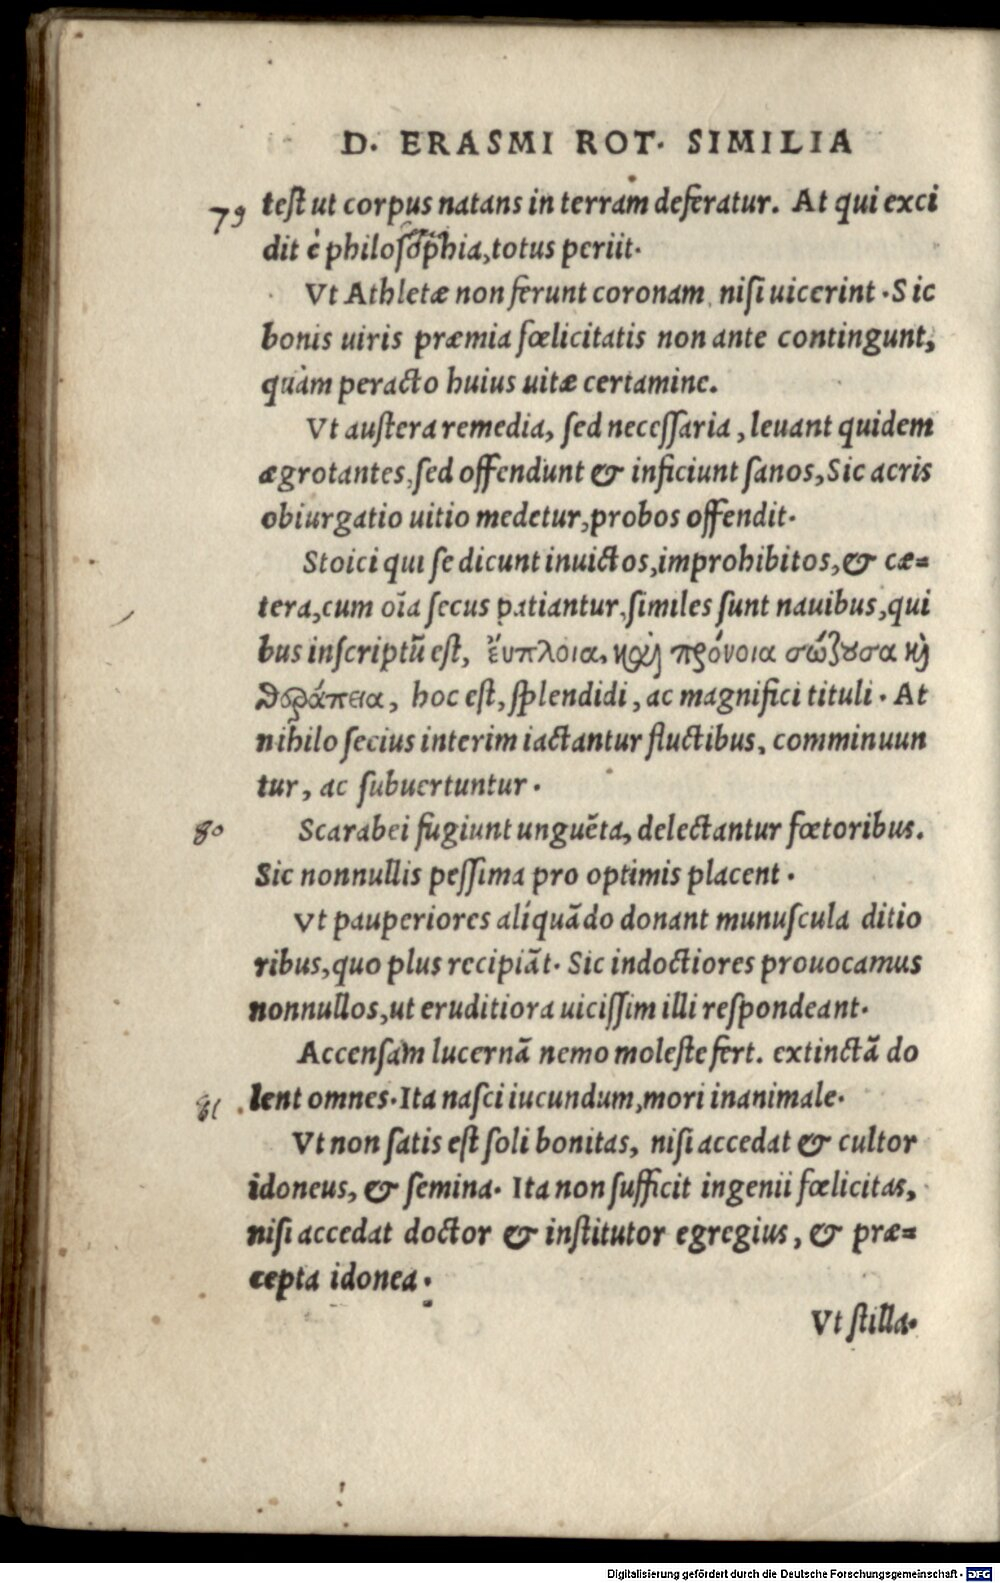 D. ERASMI ROT. SIMILIA
79 test ut corpus natans in terram deferatur. At qui exci
dit è philosophia, totus periit.
Vt Athletæ non ferunt coronam nisi uicerint. Sic
bonis uiris præmia fœlicitatis non ante contingunt,
quàm peracto huius uitæ certamine.
Vt austera remedia, sed necessaria, leuant quidem
ægrotantes, sed offendunt & inficiunt sanos, Sic acris
obiurgatio uitio medetur, probos offendit.
Stoici qui se dicunt inuictos, improhibitos, & cæ=
tera, cum oīa secus patiantur, similes sunt nauibus, qui
bus inscriptū est, ἔυπλοια, καὶ πρόνοια σώζουσα καὶ
θεράπεια, hoc est, splendidi, ac magnifici tituli. At
nihilo secius interim iactantur fluctibus, comminuun
tur, ac subuertuntur.
80 Scarabei fugiunt unguēta, delectantur fœtoribus.
Sic nonnullis pessima pro optimis placent.
Vt pauperiores aliquādo donant munuscula ditio
ribus, quo plus recipiāt. Sic indoctiores prouocamus
nonnullos, ut eruditiora uicissim illi respondeant.
Accensam lucernā nemo moleste fert. extinctā do
81 lent omnes. Ita nasci iucundum, mori inanimale.
Vt non satis est soli bonitas, nisi accedat & cultor
idoneus, & semina. Ita non sufficit ingenii fœlicitas,
nisi accedat doctor & institutor egregius, & præ=
cepta idonea.
Vt stilla.
Digitalisierung gefördert durch die Deutsche Forschungsgemeinschaft - DFG